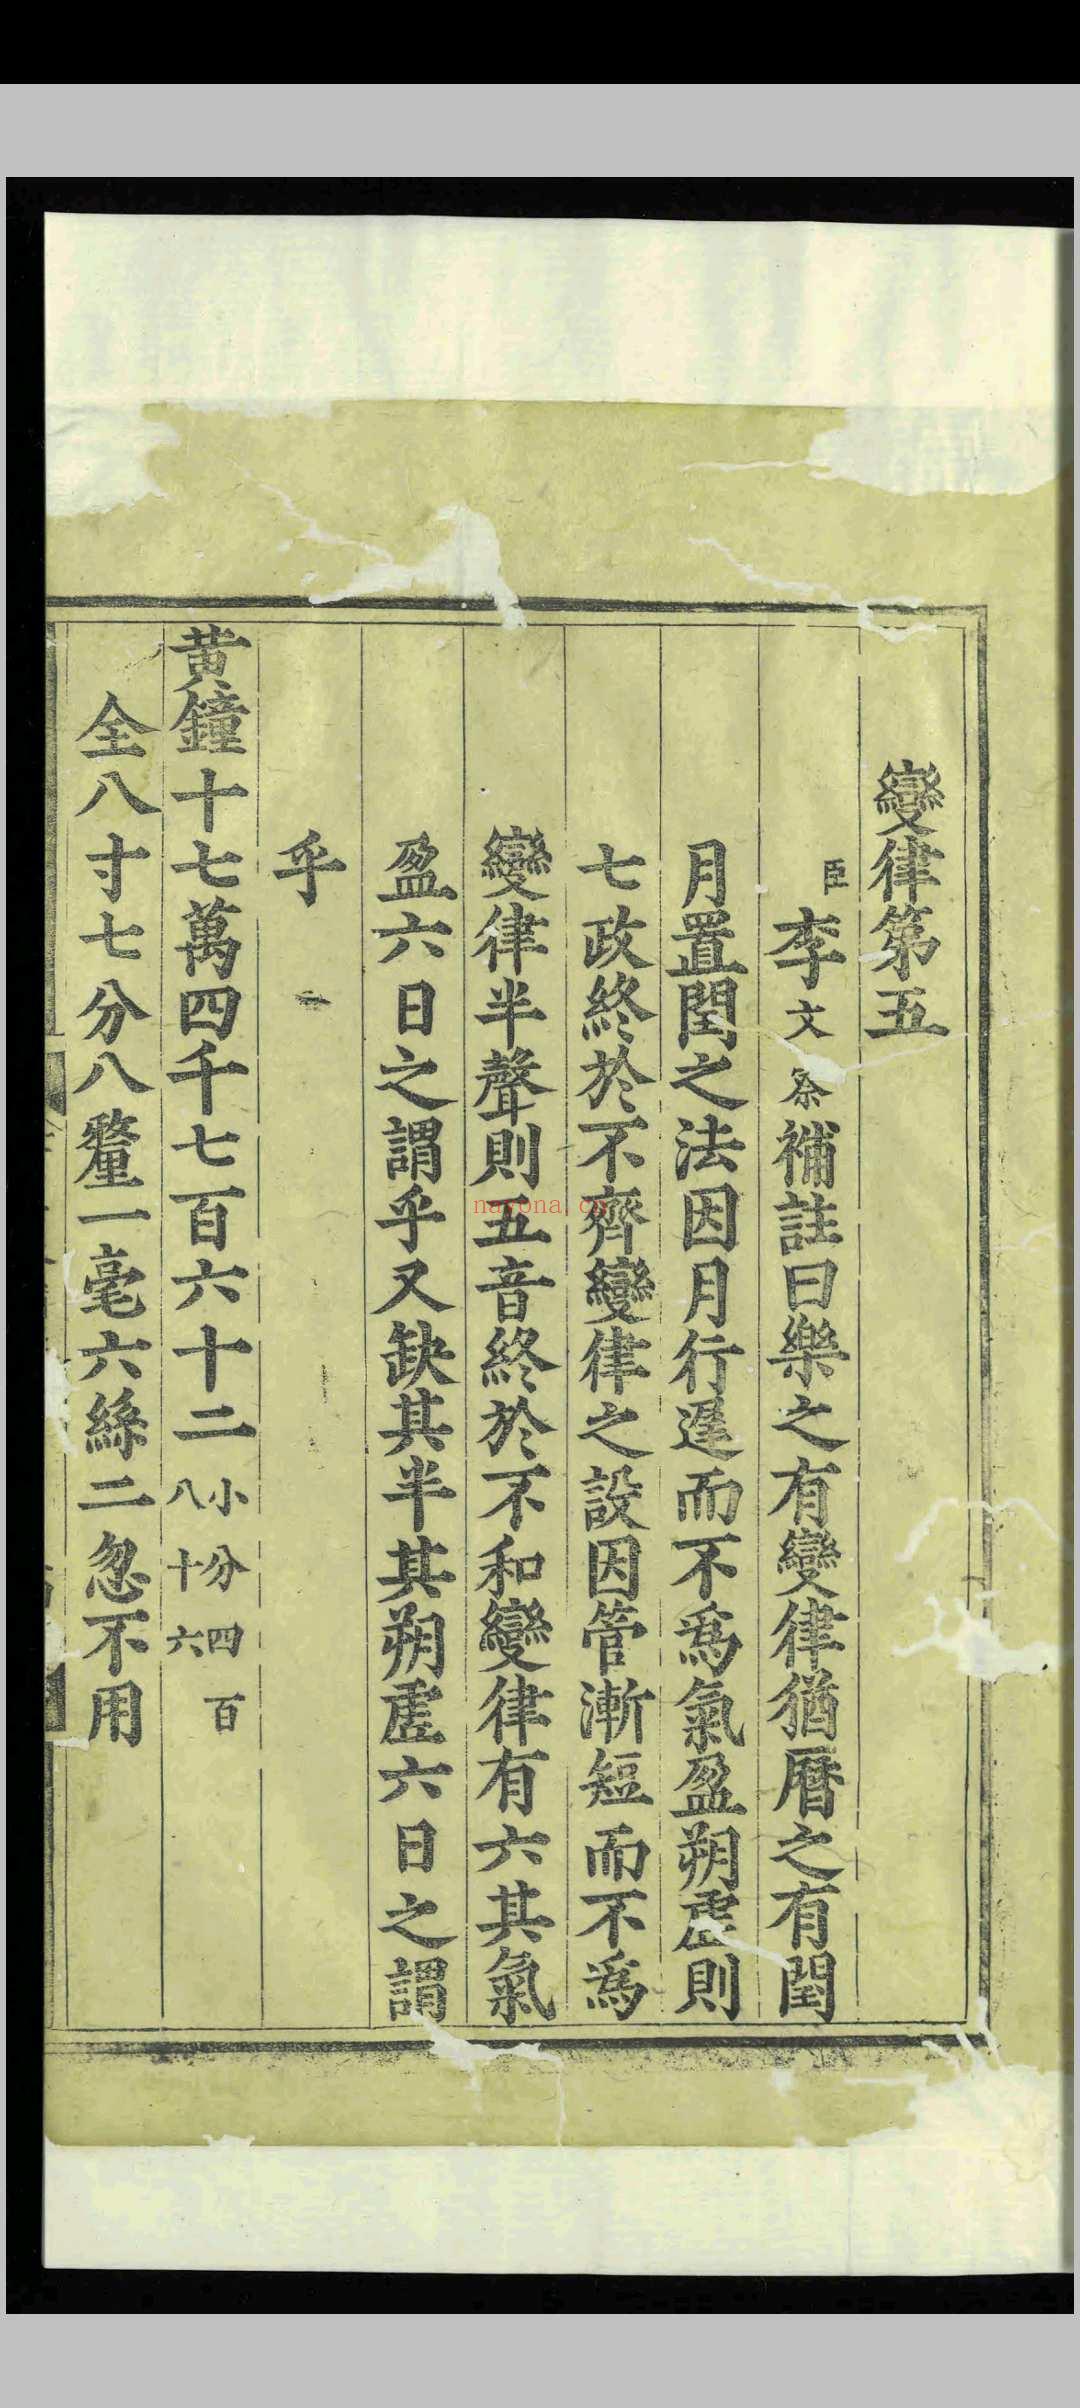 變律第五
臣李文察補註曰樂之有變律猶曆之有閏
月置閏之法因月行遲而不爲氣盈朔虛則
七政終於不齊變律之設因管漸短而不爲
變律半聲則五音終於不和變律有六其氣
盈六日之謂乎又缺其半其朔虛六日之謂
乎
黃鐘十七萬四千七百六十二小分四百八十六
全八寸七分八釐一毫六絲二忽不用
nayona.cn